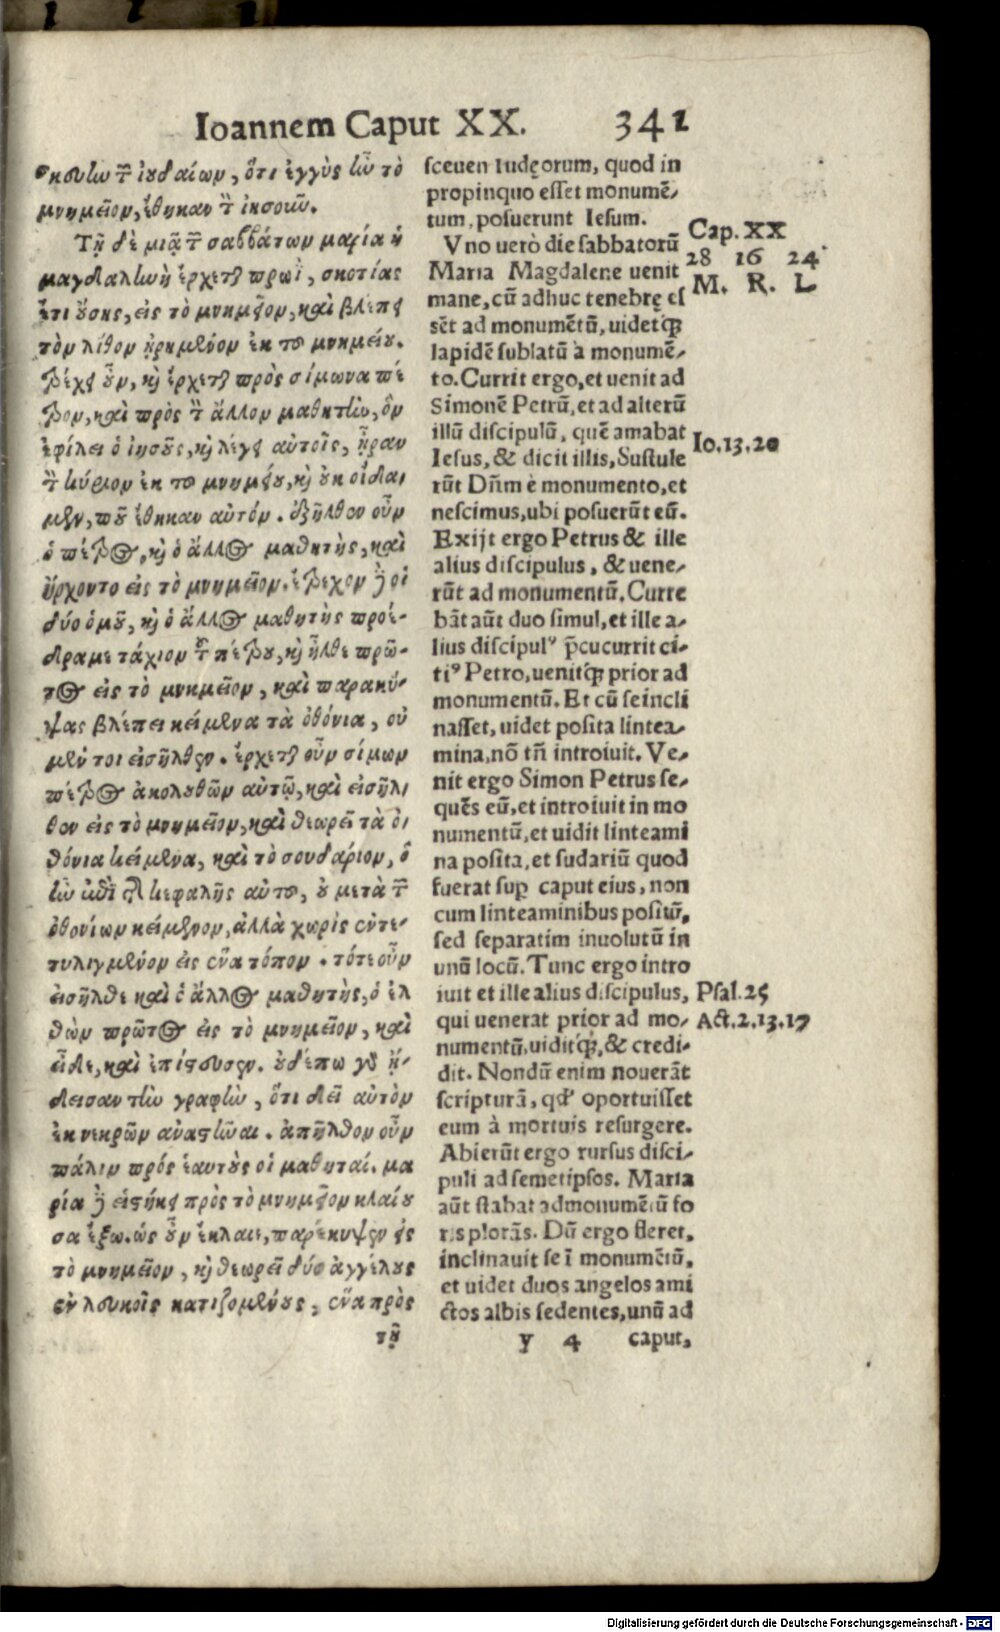 Ioannem Caput XX. 341
σκευὴν τῶν ἰουδαίων, ὅτι ἐγγὺς ἦν τὸ
μνημεῖον, ἔθηκαν τὸν ἰησοῦν.
Τῇ δὲ μιᾷ τῶν σαββάτων μαρία ἡ
μαγδαληνὴ ἔρχεται πρωῒ, σκοτίας
ἔτι οὔσης, εἰς τὸ μνημεῖον, καὶ βλέπει
τὸν λίθον ἠρμένον ἐκ τοῦ μνημείου.
τρέχει οὖν, καὶ ἔρχεται πρὸς σίμωνα πέ
τρον, καὶ πρὸς τὸν ἄλλον μαθητὴν, ὃν
ἐφίλει ὁ ἰησοῦς, καὶ λέγει αὐτοῖς, ἦραν
τὸν κύριον ἐκ τοῦ μνημείου, καὶ οὐκ οἴδα-
μεν, ποῦ ἔθηκαν αὐτόν. ἐξῆλθον οὖν
ὁ πέτρος, καὶ ὁ ἄλλος μαθητὴς, καὶ
ἤρχοντο εἰς τὸ μνημεῖον. ἔτρεχον δὲ οἱ
δύο ὁμοῦ, καὶ ὁ ἄλλος μαθητὴς προέ-
δραμε τάχιον τοῦ πέτρου, καὶ ἦλθε πρῶ-
τος εἰς τὸ μνημεῖον, καὶ παρακύ-
ψας βλέπει κείμενα τὰ ὀθόνια, οὐ
μέν τοι εἰσῆλθεν. ἔρχεται οὖν σίμων
πέτρος ἀκολουθῶν αὐτῷ, καὶ εἰσῆλ-
θον εἰς τὸ μνημεῖον, καὶ θεωρεῖ τὰ ὀ-
θόνια κείμενα, καὶ τὸ σουδάριον, ὃ
ἦν ἐπὶ τῆς κεφαλῆς αὐτοῦ, οὐ μετὰ τῶν
ὀθονίων κείμενον, ἀλλὰ χωρὶς ἐντε-
τυλιγμένον εἰς ἕνα τόπον. τότε οὖν
εἰσῆλθε καὶ ὁ ἄλλος μαθητὴς, ὁ ἐλ
θὼν πρῶτος εἰς τὸ μνημεῖον, καὶ
εἶδε, καὶ ἐπίστευσεν. οὐδέπω γὰρ ᾔ-
δεισαν τὴν γραφὴν, ὅτι δεῖ αὐτὸν
ἐκ νεκρῶν ἀναστῆναι. ἀπῆλθον οὖν
πάλιν πρὸς ἑαυτοὺς οἱ μαθηταί. μα
ρία δὲ εἱστήκει πρὸς τὸ μνημεῖον κλαίου
σα ἔξω. ὡς οὖν ἔκλαιε, παρέκυψεν εἰς
τὸ μνημεῖον, καὶ θεωρεῖ δύο ἀγγέλους
ἐν λευκοῖς κατιζομένους, ἕνα πρὸς
τῇ
sceuen Iudęorum, quod in
propinquo esset monumē-
tum, posuerunt Iesum.
Vno uerò die sabbatorū
Maria Magdalene uenit
mane, cū adhuc tenebrę es
sēt ad monumētū, uidetq́;
lapidē sublatū à monumē-
to. Currit ergo, et uenit ad
Simonē Petrū, et ad alterū
illū discipulū, quē amabat
Iesus, & dicit illis, Sustule
rūt Dñm è monumento, et
nescimus, ubi posuerūt eū.
Exijt ergo Petrus & ille
alius discipulus, & uene-
rūt ad monumentū. Curre
bāt aūt duo simul, et ille a-
lius discipulꝰ p̄cucurrit ci-
tiꝰ Petro, uenitq́; prior ad
monumentū. Et cū se incli
nasset, uidet posita lintea-
mina, nō tñ introiuit. Ve-
nit ergo Simon Petrus se-
quēs eū, et introiuit in mo
numentū, et uidit linteami
na posita, et sudariū quod
fuerat suꝑ caput eius, non
cum linteaminibus positū,
sed separatim inuolutū in
unū locū. Tunc ergo intro
iuit et ille alius discipulus,
qui uenerat prior ad mo-
numentū, uiditq́;, & credi-
dit. Nondū enim nouerāt
scripturā, qđ oportuisset
eum à mortuis resurgere.
Abierūt ergo rursus disci-
puli ad semetipsos. Maria
aūt stabat ad monumētū fo
ris plorās. Dū ergo fleret,
inclinauit se ī monumētū,
et uidet duos angelos ami
ctos albis sedentes, unū ad
y 4 caput,
Cap. XX
28 16 24
M. R. L
Io.13.20
Psal.25
Act.2.13.17
Digitalisierung gefördert durch die Deutsche Forschungsgemeinschaft - DFG